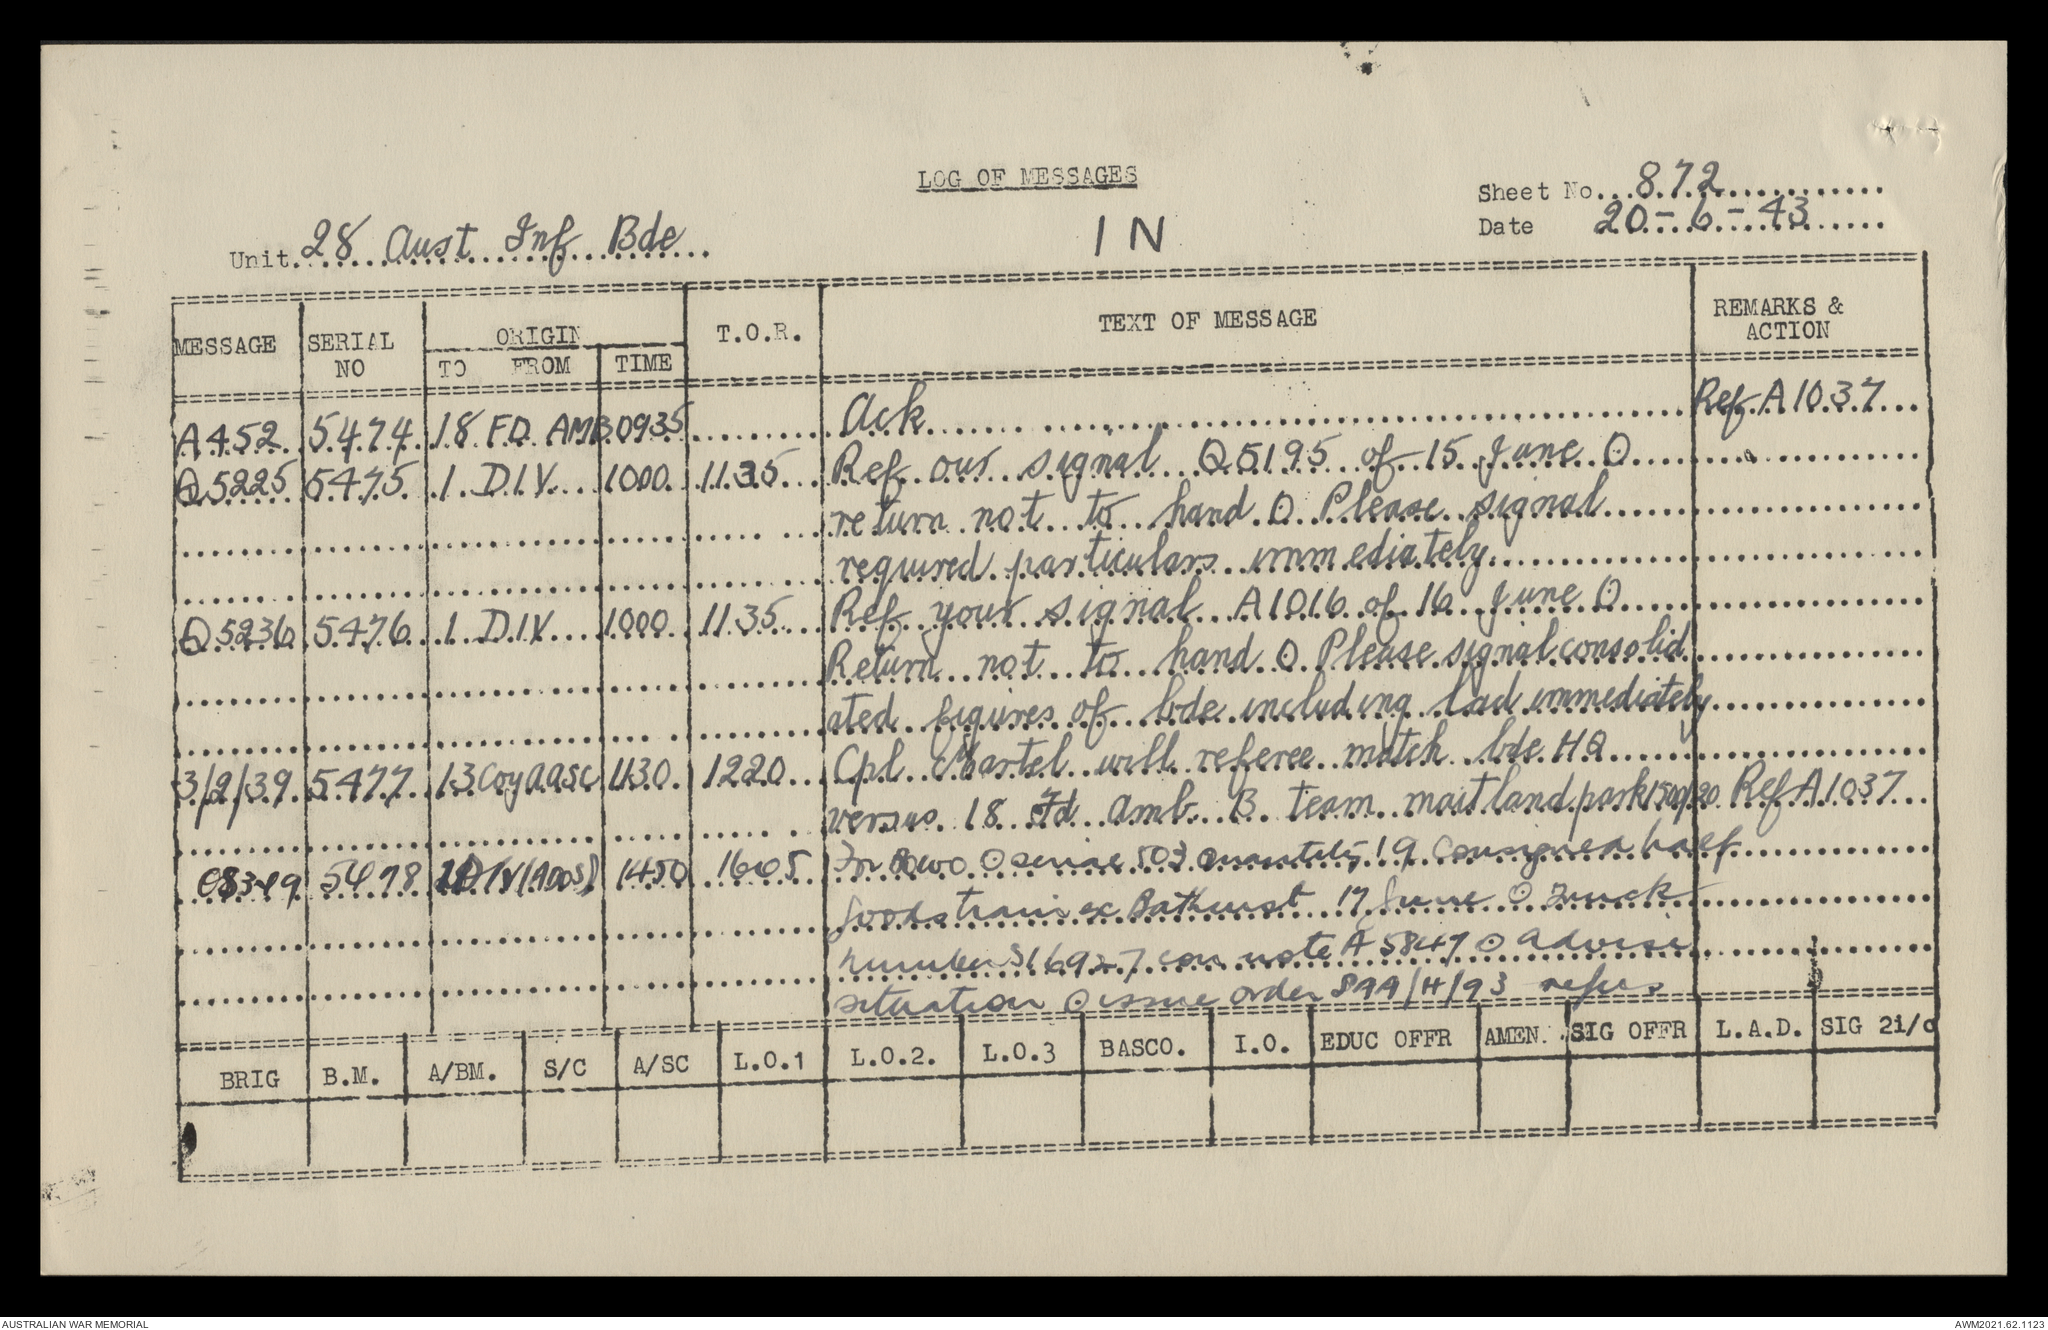 LOG OF MESSAGES
Sheet No...872
Unit 28 Aust Inf Bde
IN
Date 20-6-43
MESSAGE SERIAL NO ORIGIN TO FROM TIME T.O.R. TEXT OF MESSAGE REMARKS & ACTION
A452 5474 18 FD AMB 0935 Ack Ref A1037
Q5225 5475 1 DIV 1000 1135 Ref our signal Q5195 of 15 June O
return not to hand O Please signal
required particulars immediately
Q5236 5476 1 DIV 1000 1135 Ref your signal A1016 of 16 June O
Return not to hand O Please signal consolid
ated figures of bde including lad immediately
3/2/39 5477 13 Coy AASC 1130 1220 Cpl Martel will referee match bde HQ
versus 18 Fd Amb B team maitland park 1500/20 Ref A1037
5478 1 DIV (ADOS) 1450 1605 For O serial 503 quantity 19 consigned half
goods train ex Bathurst 17 June O Truck
number S16927 con note A5847 O advise
situation O issue order 899/H/93 refers
BRIG B.M. A/BM. S/C A/SC L.O.1 L.O.2. L.O.3 BASCO. I.O. EDUC OFFR AMEN. SIG OFFR L.A.D. SIG 2i/c
AUSTRALIAN WAR MEMORIAL
AWM2021.62.1123